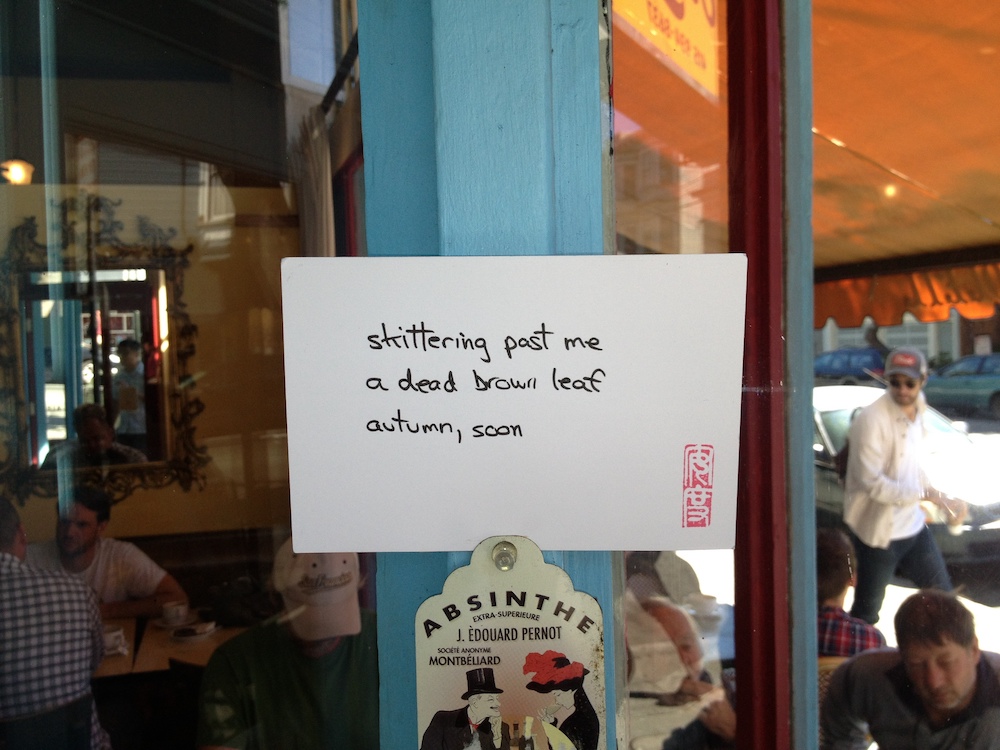 skittering past me
a dead brown leaf
autumn, soon
ABSINTHE
EXTRA-SUPERIEURE
J. ÉDOUARD PERNOT
SOCIÉTÉ ANONYME
MONTBÉLIARD